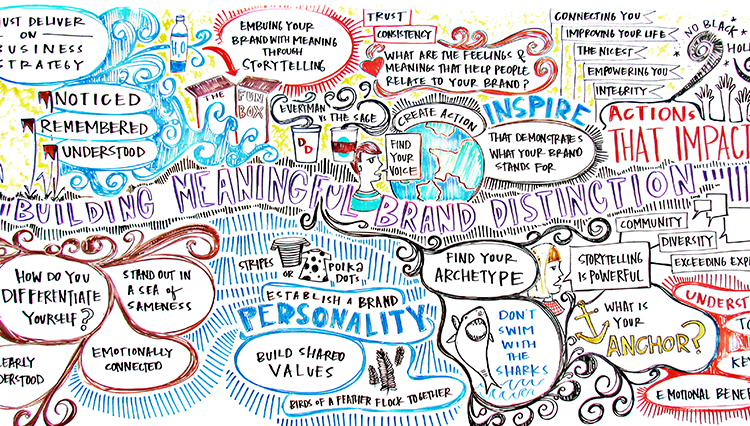 UST DELIVER
ON
USINESS
STRATEGY
H2O
NOTICED
REMEMBERED
UNDERSTOOD
EMBUING YOUR
BRAND WITH MEANING
THROUGH
STORYTELLING
THE FUN
BOX
EVERYMAN
vs THE SAGE
DD
TRUST
CONSISTENCY
WHAT ARE THE FEELINGS &
MEANINGS THAT HELP PEOPLE
RELATE TO YOUR BRAND?
CREATE ACTION
FIND
YOUR
VOICE
INSPIRE
THAT DEMONSTRATES
WHAT YOUR BRAND
STANDS FOR
CONNECTING YOU
IMPROVING YOUR LIFE
THE NICEST
EMPOWERING YOU
INTEGRITY
NO BLACK
HOL
ACTIONS
THAT IMPAC
BUILDING MEANINGFUL BRAND DISTINCTION
HOW DO YOU
DIFFERENTIATE
YOURSELF?
STAND OUT IN
A SEA OF
SAMENESS
EMOTIONALLY
CONNECTED
LEARLY
DERSTOOD
STRIPES
OR
POLKA
DOTS
ESTABLISH A BRAND
PERSONALITY
BUILD SHARED
VALUES
BIRDS OF A FEATHER FLOCK TOGETHER
FIND YOUR
ARCHETYPE
DON'T
SWIM
WITH
THE
SHARKS
STORYTELLING
IS POWERFUL
COMMUNITY
DIVERSITY
EXCEEDING EXP
WHAT IS
YOUR
ANCHOR?
UNDERST
TO
KE
EMOTIONAL BENE